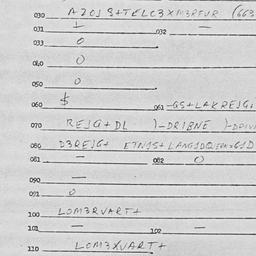 030 A20JS+TELC3XM3RTUR (663
031 1 032 —
033 0
040 0
050 0
060 $ 061 -GS+LAKREJG1
070 REJG+DL )-DRIBNE )-DRIV
080 D3REJG+ ETNJS+
081 — 082 0
090 —
091 0
100 LOM3RVART+
101 — 102 —
110 LOM3XVART+